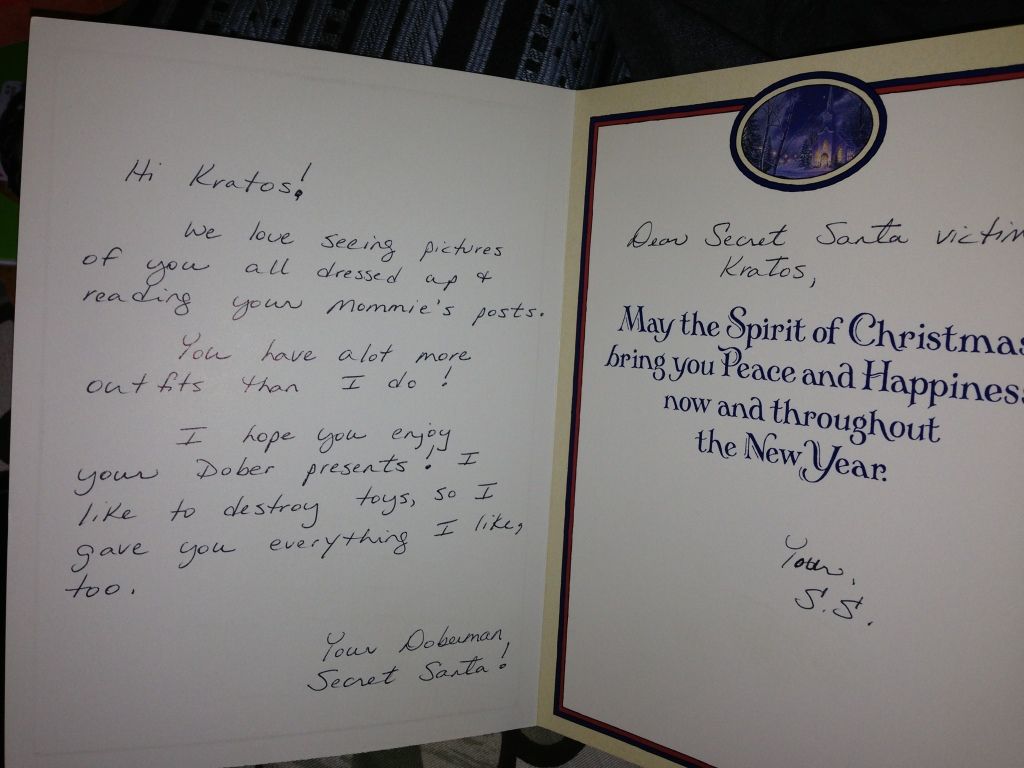 Hi Kratos!
We love seeing pictures
of you all dressed up &
reading your Mommie's posts.
You have alot more
outfits than I do!
I hope you enjoy
your Dober presents! I
like to destroy toys, so I
gave you everything I like,
too.
Your Doberman,
Secret Santa!
Dear Secret Santa victim
Kratos,
May the Spirit of Christmas
bring you Peace and Happiness
now and throughout
the New Year.
Your,
S.S.